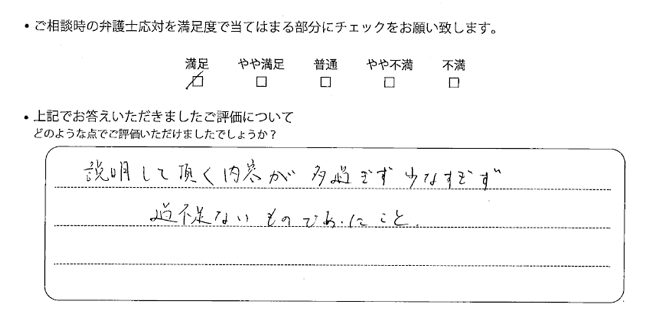 ・ご相談時の弁護士応対を満足度で当てはまる部分にチェックをお願い致します。
満足 やや満足 普通 やや不満 不満
・上記でお答えいただきましたご評価について
どのような点でご評価いただけましたでしょうか？
説明して頂く内容が多過ぎず少なすぎず
過不足ないものであったこと。